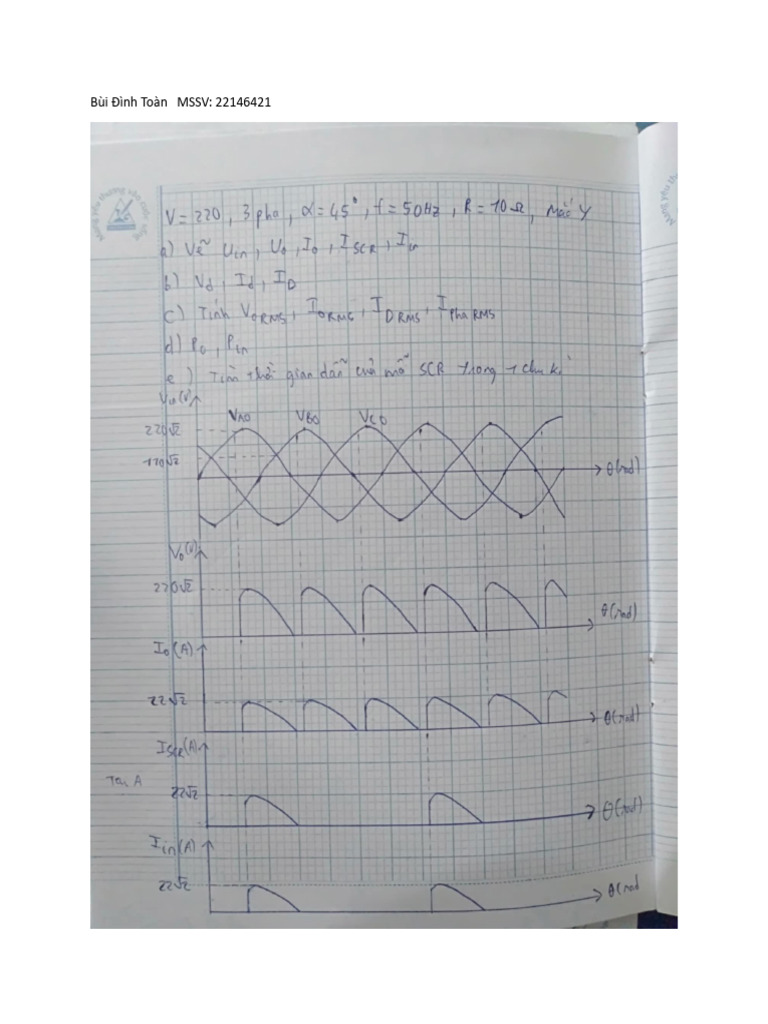 Bùi Đình Toàn MSSV: 22146421
V = 220, 3 pha, α = 45°, f = 50Hz, R = 10Ω, Mắc Y
a) Vẽ Uin, U0, I0, ISCR, Iin
b) Vd, Id, ID
c) Tính VORMS, IORMS, IDRMS, IPhaRMS
d) P0, Pin
e) Tìm thời gian dẫn của mỗi SCR trong 1 chu kì
Vin(V)
VAO VBO VCO
220√2
θ(rad)
V0(V)
220√2
θ(rad)
I0(A)
22√2
θ(rad)
ISCR(A)
Tại A
22√2
θ(rad)
Iin(A)
22√2
θ(rad